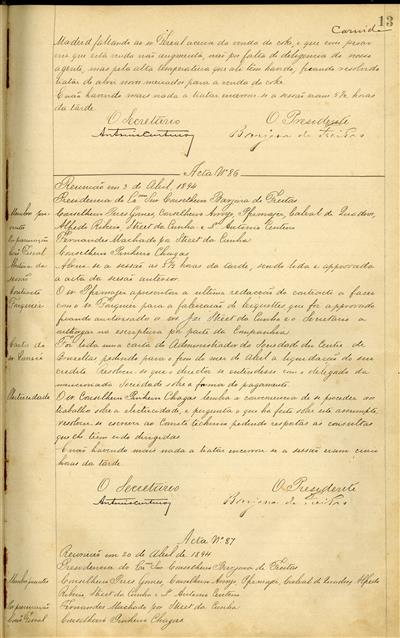 13
Carvide
Madrid fallando ao sr. Thereal acerca da venda do coke, e que com pesar
viu que esta venda não augmenta, mas por falta de diligencia do nosso
agente, mas pela alta temperatura que ali tem havido, ficando resolvido
tratar de abrir novos mercados para a venda do coke.
E não havendo mais nada a tratar encerrou-se a sessão eram 5 ½ horas
da tarde.
O Secretário
O Presidente
Antonio Centeno
Barjona de Freitas
Acta Nº 86
Reunião em 2 de Abril, 1894
Presidencia do Exmo Snr Conselheiro Barjona de Freitas
Membros presentes
Conselheiro Peres Gomes, Conselheiro Arroyo, Pfermayer, Cabral de Quadros,
Alfredo Ribeiro, Street da Cunha e Sr. Antonio Centeno
Fernandes Machado por Street da Cunha
Conselho Fiscal
Conselheiro Pinheiro Chagas
Abertura da sessão
Abriu-se a sessão ás 5 ½ horas da tarde, sendo lida e approvada
a acta da sessão anterior.
Contracto Fargues
O sr Pfermayer apresentou a ultima redacção do contracto a fazer
com o sr Fargues para a fabricação de briquettes que foi approvado
ficando authorisado o sr. por Street da Cunha e o Secretario a
outhorgar na escriptura por parte da Companhia
Carta do
Foi lida uma carta do Administrador da Sociedade du Centre de
Bruxellas pedindo para o fim do mez de Abril a liquidação do seu
credito. Resolveu-se que o director se entendesse com o delegado da
mencionada Sociedade sobre a forma do pagamento.
Electricidade
O sr Conselheiro Pinheiro Chagas lembra a conveniencia de se proceder ao
trabalho sobre a electricidade, e pergunta o que ha feito sobre este assumpto,
resolveu-se escrever ao Comité technico pedindo respostas ás consultas
que lhe têem sido dirigidas
E não havendo mais nada a tratar encerrou-se a sessão eram cinco
horas da tarde
O Secretário
O Presidente
Antonio Centeno
Barjona de Freitas
Acta Nº 87
Reunião em 20 de Abril de 1894
Presidencia do Exmo Snr Conselheiro Barjona de Freitas
Membros presentes
Conselheiro Peres Gomes, Conselheiro Arroyo, Pfermayer, Cabral de Quadros, Alfredo
Ribeiro, Street da Cunha e Sr. Antonio Centeno
Fernandes Machado por Street da Cunha
Conselho Fiscal
Conselheiro Pinheiro Chagas